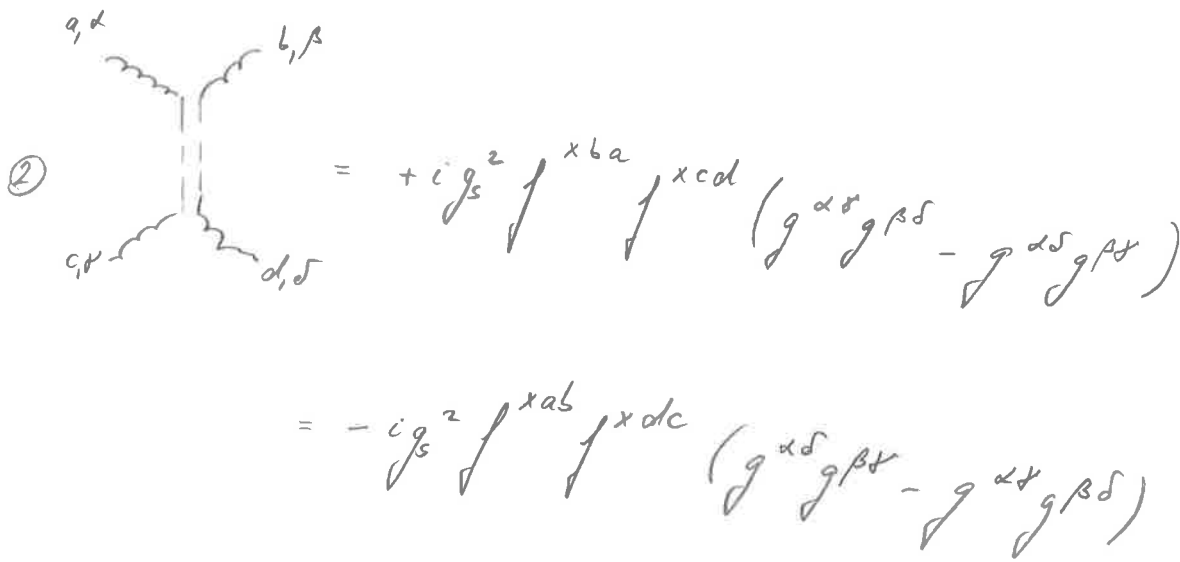 a,α b,β
② = + i g_s^2 f^{xba} f^{xcd} (g^{αγ} g^{βδ} - g^{αδ} g^{βγ})
c,γ d,δ
= - i g_s^2 f^{xab} f^{xdc} (g^{αδ} g^{βγ} - g^{αγ} g^{βδ})